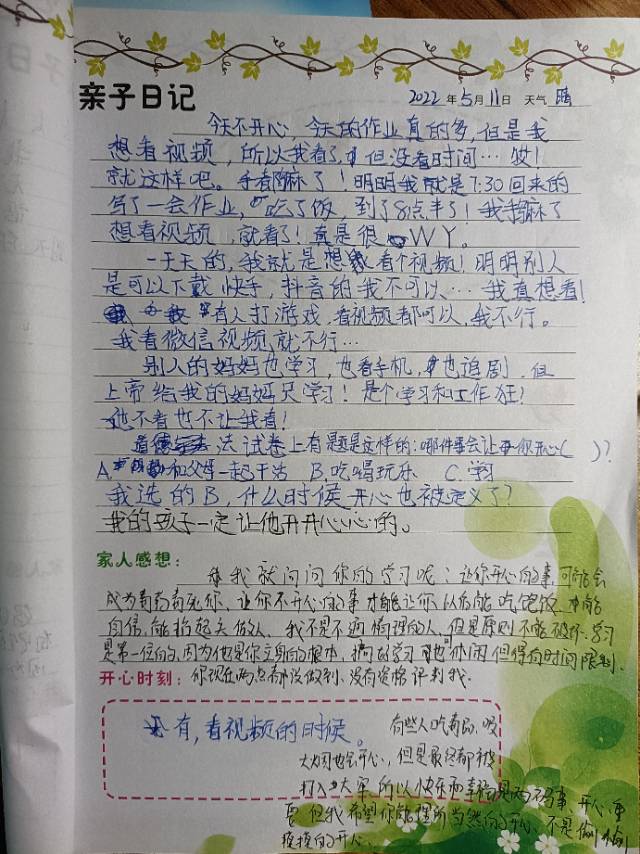 亲子日记
2022年5月11日 天气 晴
今天不开心，今天的作业真的多，但是我
想看视频，所以我看了，但没看时间…哎！
就这样吧。手都麻了！明明我就是7:30回来的
写了一会作业，吃了饭，到了8点半了！我手麻了
想看视频，就看了！真是很WY。
一天天的，我就是想看个视频！明明别人
是可以下载快手，抖音的我不可以…我真想看！
有人打游戏，看视频都可以，我不行。
我看微信视频就不行…
别人的妈妈也学习，也看手机，也追剧，但
上帝给我的妈妈只学习！是个学习和工作狂！
她不看也不让我看！
法试卷上有题是这样的：哪件事会让你开心( )？
A. 和父母一起干活 B.吃喝玩乐 C.学习
我选的B，什么时候开心也被定义了？
我的孩子一定让他开开心心的。
家人感想：
我就问问你的学习呢：让你开心的事，可能会
成为毒药毒死你、让你不开心的事才能让你以后能吃饱饭、才能
自信，能抬起头做人，我不是不通情理的人，但是原则不能破坏，学习
是第一位的，因为他是你立身的根本，搞好学习可也休闲但得有时间限制。
开心时刻：你现在两点都没做到，没有资格评判我。
有，看视频的时候。
有些人吃毒品，吸
大烟也开心，但是最终都被
打入大牢，所以快乐和幸福是两码事、开心重
要，但我希望你能理所当然的开心、不是偷偷
摸摸的开心。